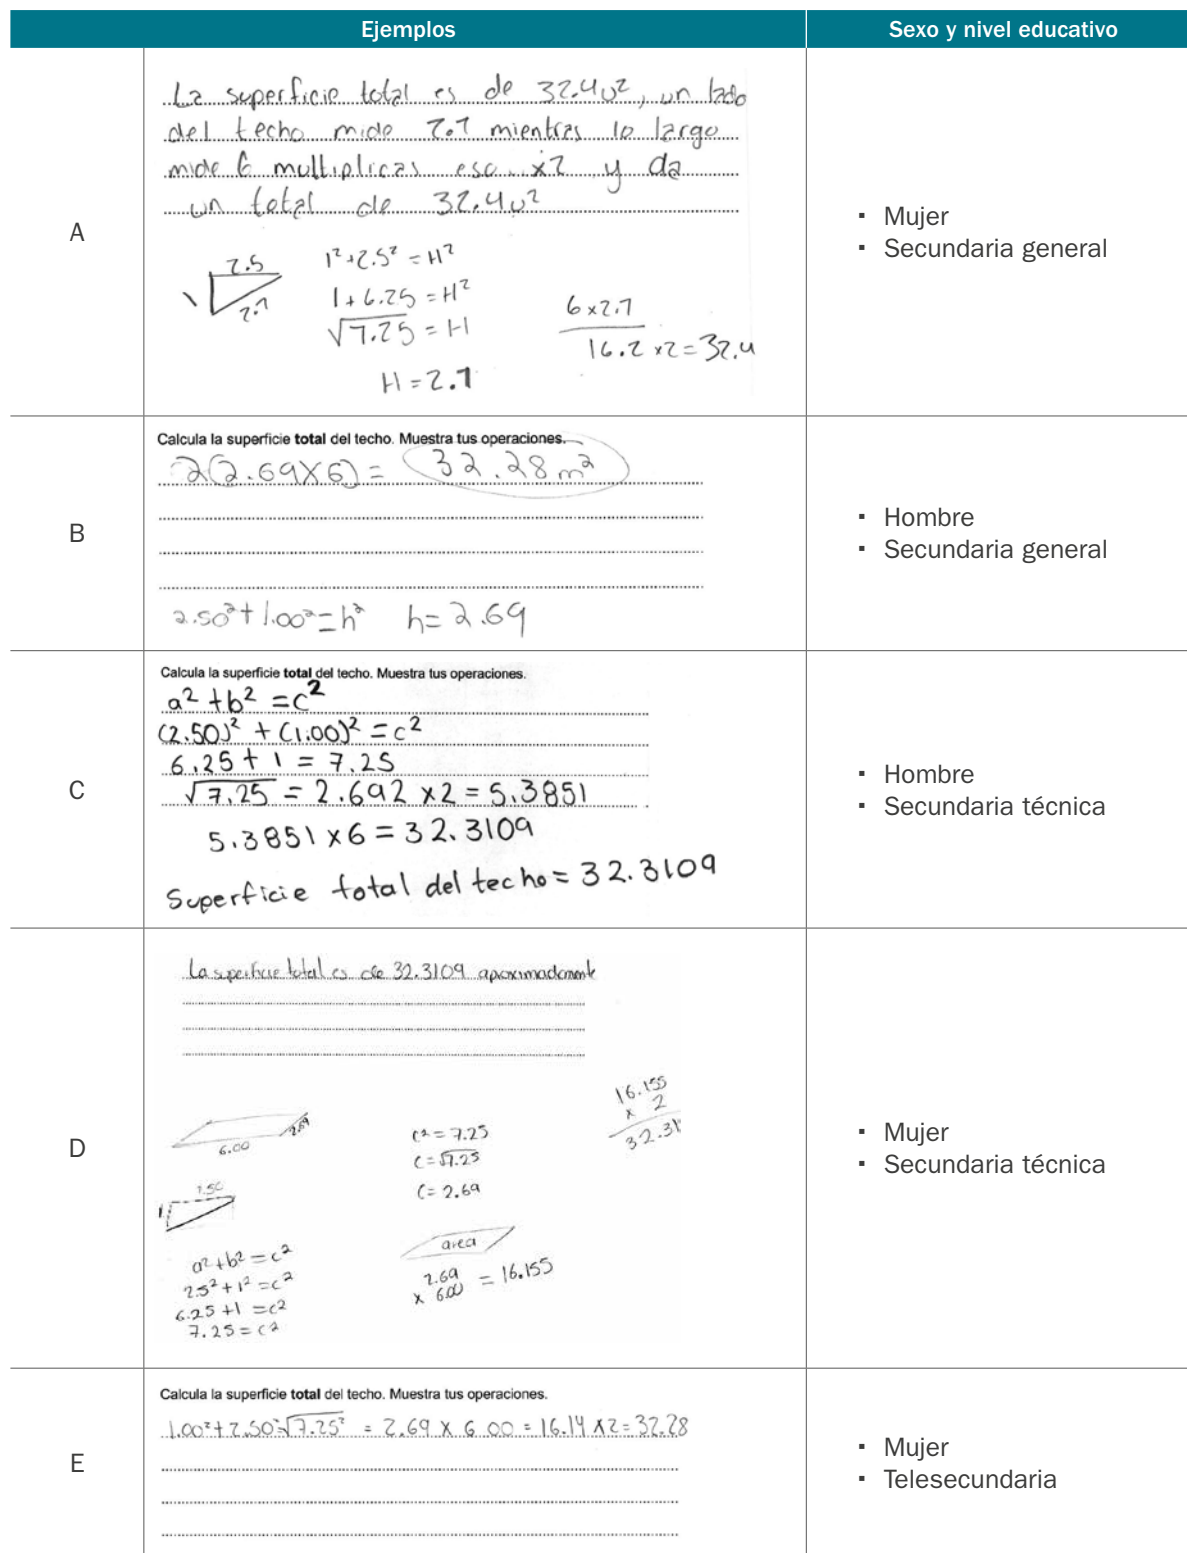 Ejemplos
Sexo y nivel educativo
A
La superficie total es de 32.4u², un lado
del techo mide 2.7 mientras lo largo
mide 6 multiplicas eso x2 y da
un total de 32.4u²
2.5
1
2.7
1²+2.5² = H²
1+6.25 = H²
√7.25 = H
H = 2.7
6 x 2.7
16.2 x2 = 32.4
▪ Mujer
▪ Secundaria general
B
Calcula la superficie total del techo. Muestra tus operaciones.
2(2.69X6) = 32.28 m²
2.50² + 1.00² = h² h = 2.69
▪ Hombre
▪ Secundaria general
C
Calcula la superficie total del techo. Muestra tus operaciones.
a² + b² = c²
(2.50)² + (1.00)² = c²
6.25 + 1 = 7.25
√7.25 = 2.692 x2 = 5.3851
5.3851 x 6 = 32.3109
Superficie total del techo = 32.3109
▪ Hombre
▪ Secundaria técnica
D
La superficie total es de 32.3109 aproximadamente
6.00
2.69
1
a² + b² = c²
2.5² + 1² = c²
6.25 + 1 = c²
7.25 = c²
c² = 7.25
c = √7.25
c = 2.69
area
2.69
x 6.00 = 16.155
16.155
x 2
32.31
▪ Mujer
▪ Secundaria técnica
E
Calcula la superficie total del techo. Muestra tus operaciones.
1.00² + 2.50² = √7.25² = 2.69 X 6.00 = 16.14 X2 = 32.28
▪ Mujer
▪ Telesecundaria